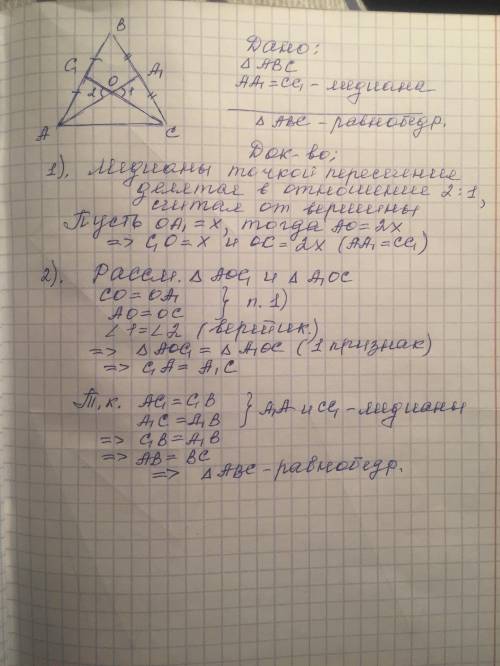 B
C₁
A₁
O
2
1
A
C
Дано:
△ ABC
AA₁ = CC₁ - медиана
△ ABC - равнобедр.
Док-во:
1). Медианы точкой пересечения
делятся в отношение 2:1,
считая от вершины
Пусть OA₁ = x, тогда AO = 2x
=> C₁O = x и OC = 2x (AA₁ = CC₁)
2). Рассм. △ AOC₁ и △ A₁OC
CO = OA₁
AO = OC } п. 1)
∠1 = ∠2 (вертик.)
=> △ AOC₁ = △ A₁OC (1 признак)
=> C₁A = A₁C
Т.к. AC₁ = C₁B
A₁C = A₁B } A₁A и CC₁ - медианы
=> C₁B = A₁B
=> AB = BC
=> △ ABC - равнобедр.